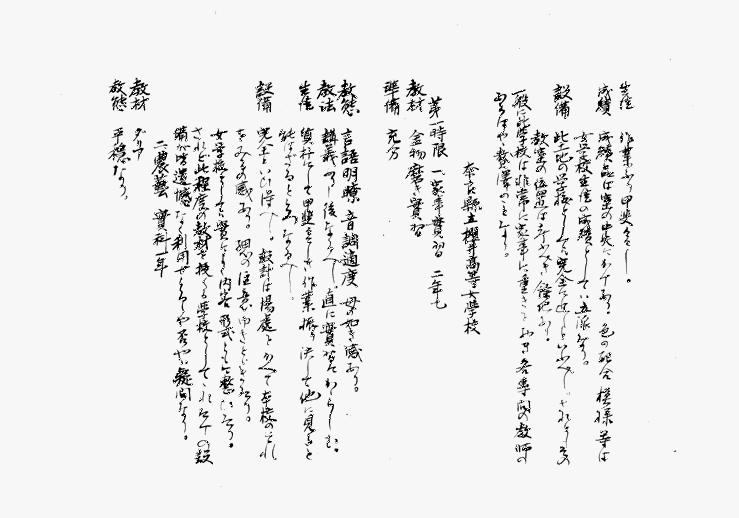 生徒 作業ぶり甲斐々々し。
成績 成績品は室の中央にかけあり、色の配合模様等は
女学校生徒の成績としては立派なり。
設備 此土地の学校としては完全に近しといふべし。されど
教室の位置は
一般に此学校は非常に家事に重きをおき各専門の教師の
奈良縣立櫻井高等女學校
第一時限 一、家事實習 二年七
教材 金物磨き實習
準備 充分
教態 言語明瞭、音調適度、母の如き感あり。
教法 講義 後 直に實習にわらしむ。
生徒 質朴にして甲斐々々しき作業振り決して他に見ること
能はざるところなるべし。
設備 完全といひ得べし。設計は場處とかへて本校のそれ
をみるの感あり。細の注意ゆきとどきたり。
女学校としては實によき内容形式とも整ひたり。
されど此程度の教材を授くる学校としてこれだけの設
備が皆遺憾なく利用せらるゝや否やは疑問なり。
二、農藝 實科一年
教材 ダリヤ
教態 平穏なり。